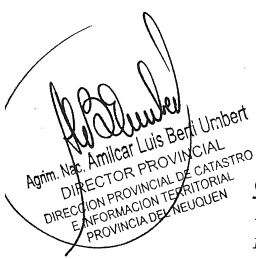 Agrim. Nac. Amilcar Luis Berti Umbert
DIRECTOR PROVINCIAL
DIRECCION PROVINCIAL DE CATASTRO
E INFORMACION TERRITORIAL
PROVINCIA DEL NEUQUEN